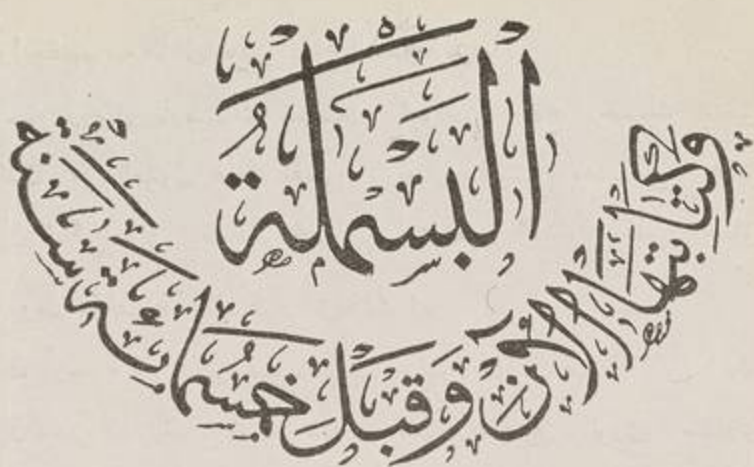 البسملة
وكتابتها الآن وقبل خمسمائة سنة